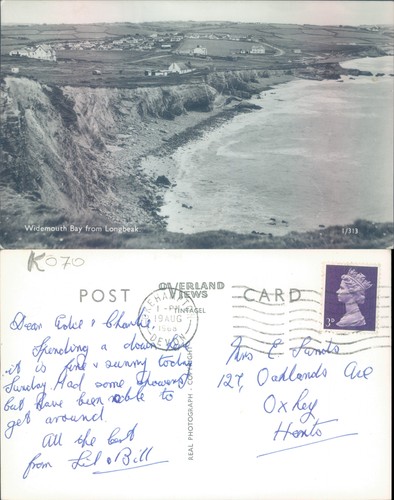 Widemouth Bay from Longbeak.
1/313
K070
POST
OVERLAND
VIEWS
TINTAGEL
CARD
1 - PM
19 AUG
1968
DEVON
3D
REAL PHOTOGRAPH
COPYRIGHT
Dear Edie & Charlie,
Spending a down here
it is fine & sunny today
Sunday. Had some showers
but have been able to
get around.
All the best
from & Bill
Mrs E Sands
127, Oaklands Ave
Oxhey
Herts